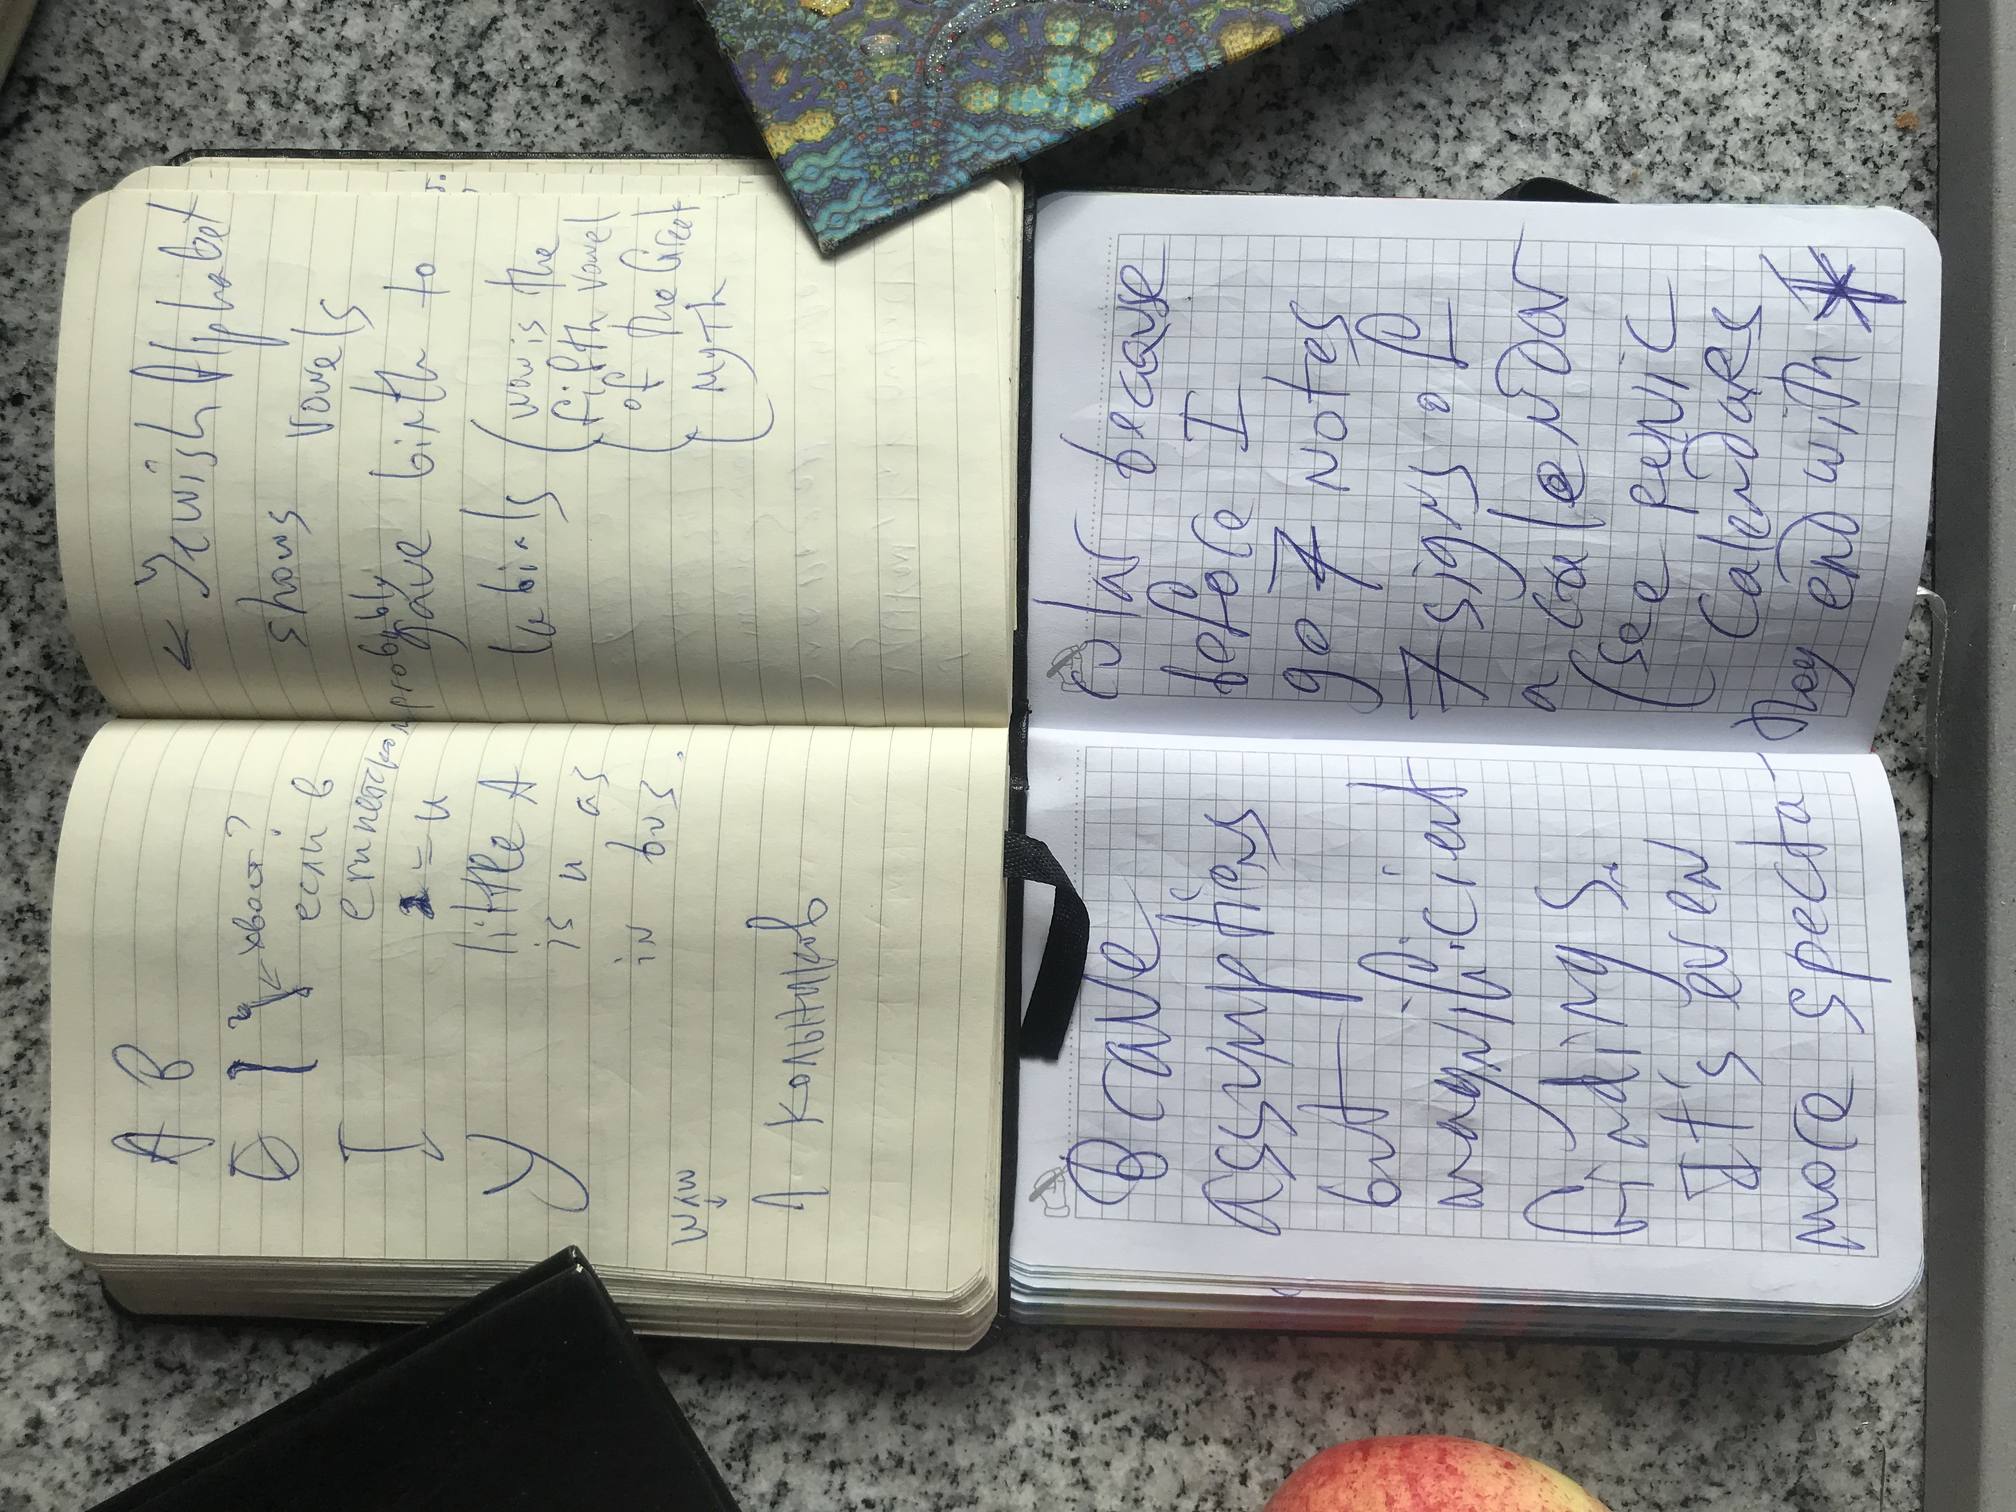 A B
O
хвост?
если в
египетском
I
= u
Y
little A
is u as
in bus.
waw
Λ КОЛЬНИКОВ
« Jewish Alphabet
shows vowels
probybly
gave birth to
labials
(waw is the
fifth vowel
of the Great
myth
(B) CAVE
Assymptions
but
magnificient
findings.
It's even
more specta-
cular because
before I
go 7 notes
7 signs of
a calendar
(see рервис
Calendars
They end with *